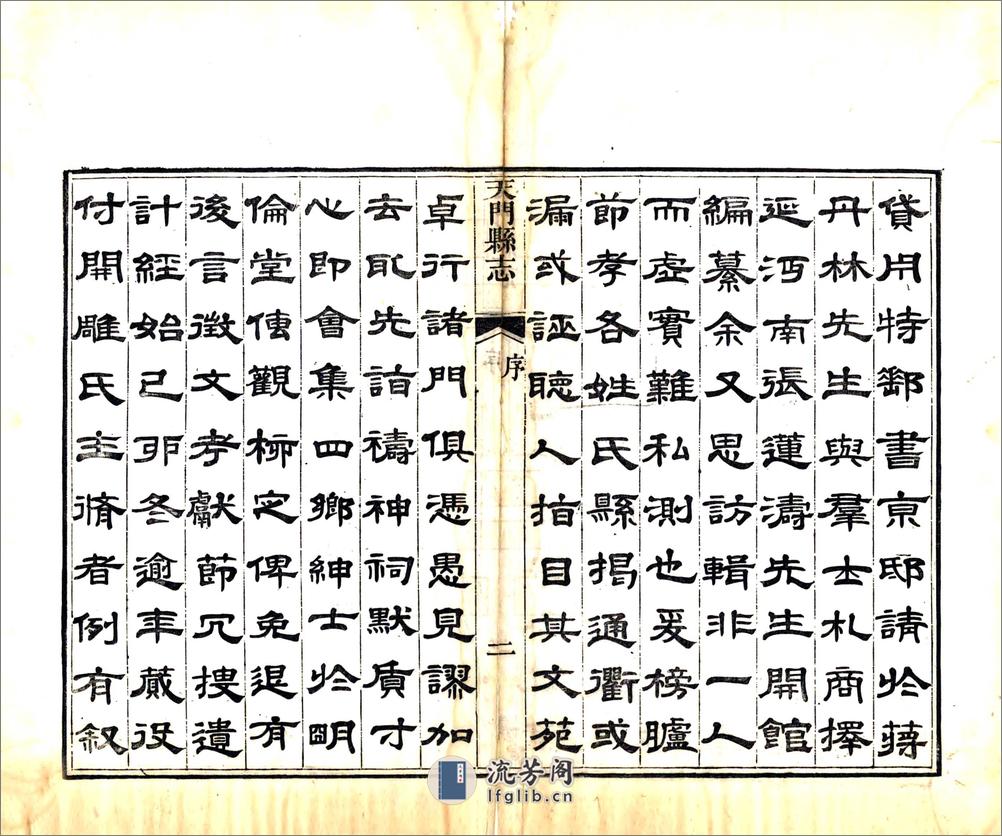 貸用特郵書京邸請於蔣
丹林先生與羣士札商擇
延沔南張蓮濤先生開館
編纂余又思訪輯非一人
而虛實難私測也爰榜臚
節孝各姓氏縣揭通衢或
漏或誣聽人指目其文苑
天門縣志
序
二
卓行諸門俱憑愚見謬加
去取先詣禱神祠默質寸
心即會集四鄉紳士於明
倫堂傳觀柳定俾免退有
後言徵文考獻節冗搜遺
計經始己卯冬逾年蕆役
付開雕氏主脩者例有叙
流芳阁
lfglib.cn